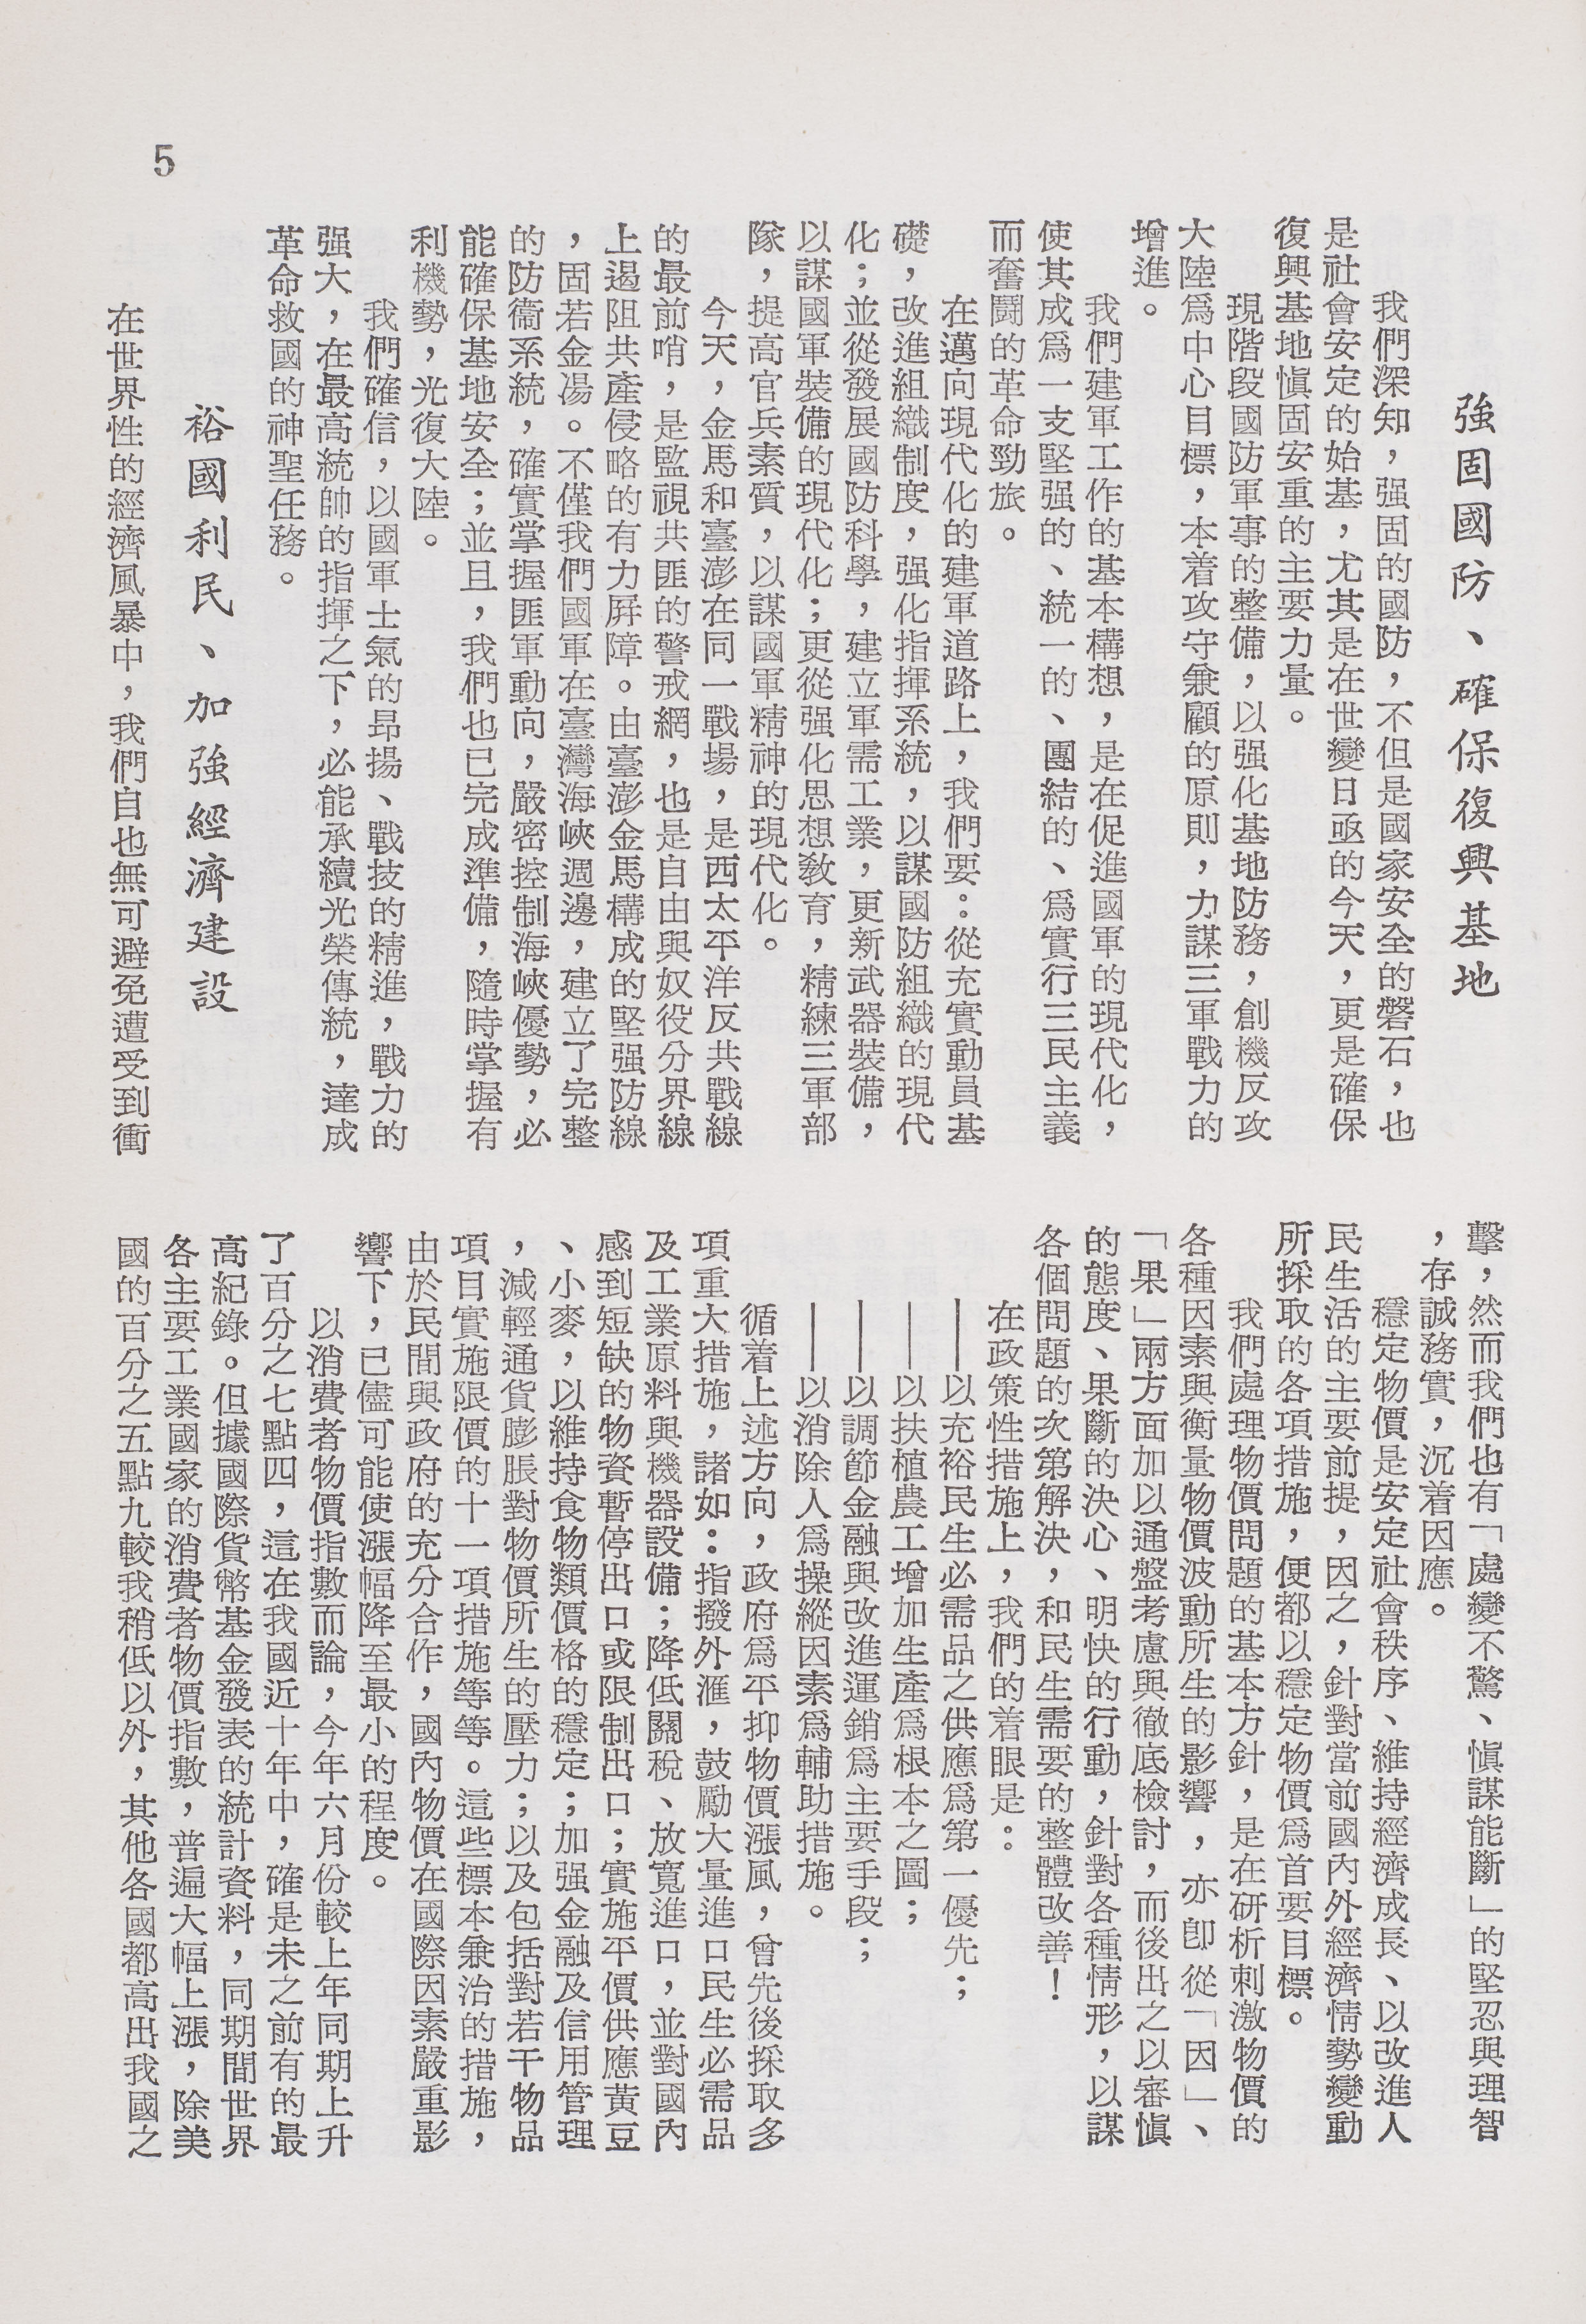 強固國防、確保復興基地
我們深知，强固的國防，不但是國家安全的磐石，也
是社會安定的始基，尤其是在世變日亟的今天，更是確保
復興基地愼固安重的主要力量。
現階段國防軍事的整備，以强化基地防務，創機反攻
大陸爲中心目標，本着攻守兼顧的原則，力謀三軍戰力的
增進。
我們建軍工作的基本構想，是在促進國軍的現代化，
使其成爲一支堅强的、統一的、團結的、爲實行三民主義
而奮鬪的革命勁旅。
在邁向現代化的建軍道路上，我們要：從充實動員基
礎，改進組織制度，强化指揮系統，以謀國防組織的現代
化；並從發展國防科學，建立軍需工業，更新武器裝備，
以謀國軍裝備的現代化；更從强化思想敎育，精練三軍部
隊，提高官兵素質，以謀國軍精神的現代化。
今天，金馬和臺澎在同一戰場，是西太平洋反共戰線
的最前哨，是監視共匪的警戒網，也是自由與奴役分界線
上遏阻共產侵略的有力屛障。由臺澎金馬構成的堅强防線
，固若金湯。不僅我們國軍在臺灣海峽週邊，建立了完整
的防衞系統，確實掌握匪軍動向，嚴密控制海峽優勢，必
能確保基地安全；並且，我們也已完成準備，隨時掌握有
利機勢，光復大陸。
我們確信，以國軍士氣的昂揚、戰技的精進，戰力的
强大，在最高統帥的指揮之下，必能承續光榮傳統，達成
革命救國的神聖任務。
裕國利民、加強經濟建設
在世界性的經濟風暴中，我們自也無可避免遭受到衝
擊，然而我們也有「處變不驚、愼謀能斷」的堅忍與理智
，存誠務實，沉着因應。
穩定物價是安定社會秩序、維持經濟成長、以改進人
民生活的主要前提，因之，針對當前國內外經濟情勢變動
所採取的各項措施，便都以穩定物價爲首要目標。
我們處理物價問題的基本方針，是在研析刺激物價的
各種因素與衡量物價波動所生的影響，亦卽從「因」、
「果」兩方面加以通盤考慮與徹底檢討，而後出之以審愼
的態度、果斷的決心、明快的行動，針對各種情形，以謀
各個問題的次第解決，和民生需要的整體改善！
在政策性措施上，我們的着眼是：
——以充裕民生必需品之供應爲第一優先；
——以扶植農工增加生產爲根本之圖；
——以調節金融與改進運銷爲主要手段；
——以消除人爲操縱因素爲輔助措施。
循着上述方向，政府爲平抑物價漲風，曾先後採取多
項重大措施，諸如：指撥外滙，鼓勵大量進口民生必需品
及工業原料與機器設備；降低關稅、放寬進口，並對國內
感到短缺的物資暫停出口或限制出口；實施平價供應黃豆
、小麥，以維持食物類價格的穩定；加强金融及信用管理
，減輕通貨膨脹對物價所生的壓力；以及包括對若干物品
項目實施限價的十一項措施等等。這些標本兼治的措施，
由於民間與政府的充分合作，國內物價在國際因素嚴重影
響下，已儘可能使漲幅降至最小的程度。
以消費者物價指數而論，今年六月份較上年同期上升
了百分之七點四，這在我國近十年中，確是未之前有的最
高紀錄。但據國際貨幣基金發表的統計資料，同期間世界
各主要工業國家的消費者物價指數，普遍大幅上漲，除美
國的百分之五點九較我稍低以外，其他各國都高出我國之
5